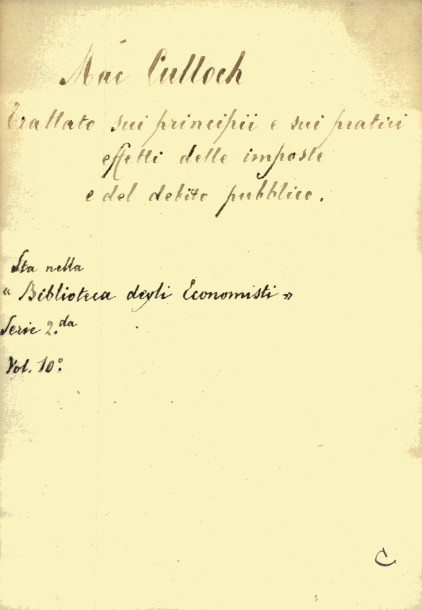 Mac Culloch
Trattato sui principii e sui pratici
effetti delle imposte
e del debito pubblico.
Sta nella
« Biblioteca degli Economisti »
Serie 2.da
Vol. 10°.
C